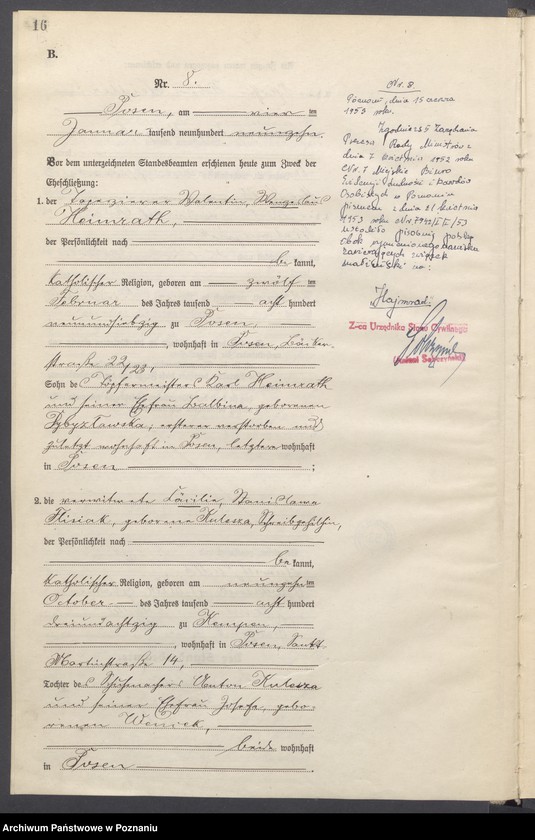 16
B.
Nr. 8.
Posen, am vier ten
Januar tausend neunhundert neunzehn.
Vor dem unterzeichneten Standesbeamten erschienen heute zum Zweck der
Eheschließung:
1. der Tapezierer Valentin, Wenzeslaus
Heimrath,
der Persönlichkeit nach
be kannt,
katholischer Religion, geboren am zwölf ten
Februar des Jahres tausend acht hundert
neunundsiebzig zu Posen,
, wohnhaft in Posen, Bäcker-
straße 22/23,
Sohn des Töpfermeisters Karl Heimrath
und seiner Ehefrau Balbina, geborenen
ersterer verstorben und
zuletzt wohnhaft in Posen, letztere wohnhaft
in Posen ;
2. die verwitwete Cäcilie, Stanislawa
Flisiak, geborene Kulesza, Schreibgehilfin,
der Persönlichkeit nach
be kannt,
katholischer Religion, geboren am neunzehn ten
October des Jahres tausend acht hundert
dreiundachtzig zu Kempen,
, wohnhaft in Posen, Sankt
Martinstraße 14,
Tochter des Schuhmachers Anton Kulesza
und seiner Ehefrau Josefa, gebo-
renen
beide wohnhaft
in Posen .
Nr. 8
Poznań, dnia 15 czerwca
1953 roku.
Zgodnie z § Zarządzenia
Prezesa Rady Ministrów z
dnia 7 kwietnia 1952 roku
Nr. Miejskie Biuro
Ewidencji Ludności i Dowodów
Osobistych w Poznaniu
pismem z dnia 11 kwietnia
1953 roku Nr.
pisownię polską
obok wymienionego nazwiska
zawierających związek
małżeński na:
Hajmrad
Z-ca Urzędnika Stanu Cywilnego
Archiwum Państwowe w Poznaniu